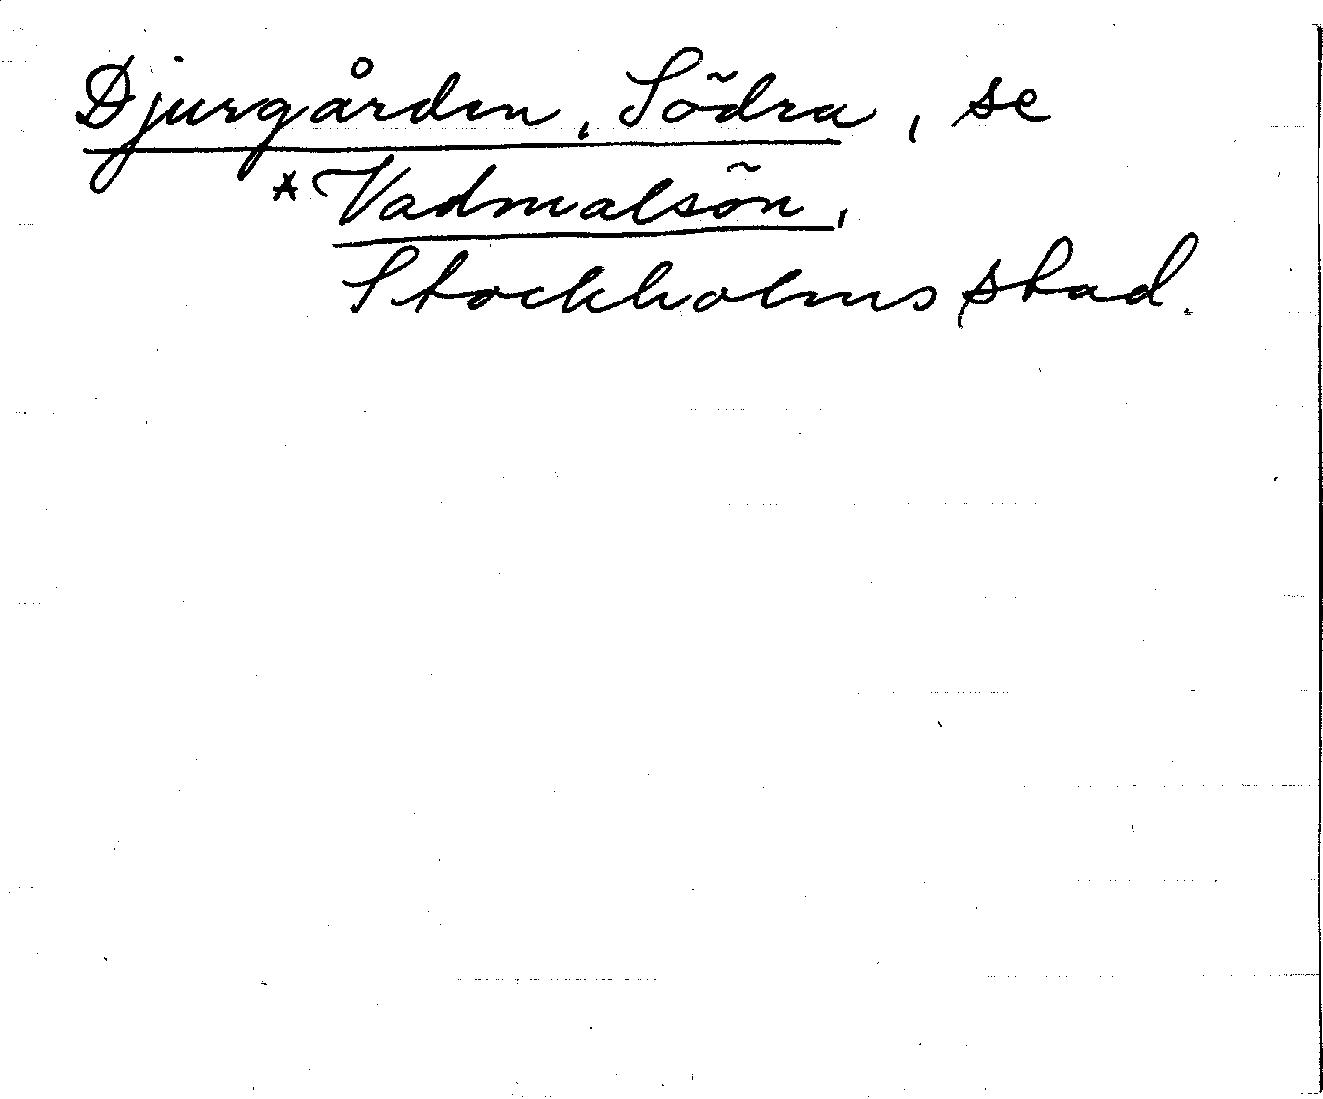 Djurgården, Södra, se
*Vadmalsön,
Stockholms stad.